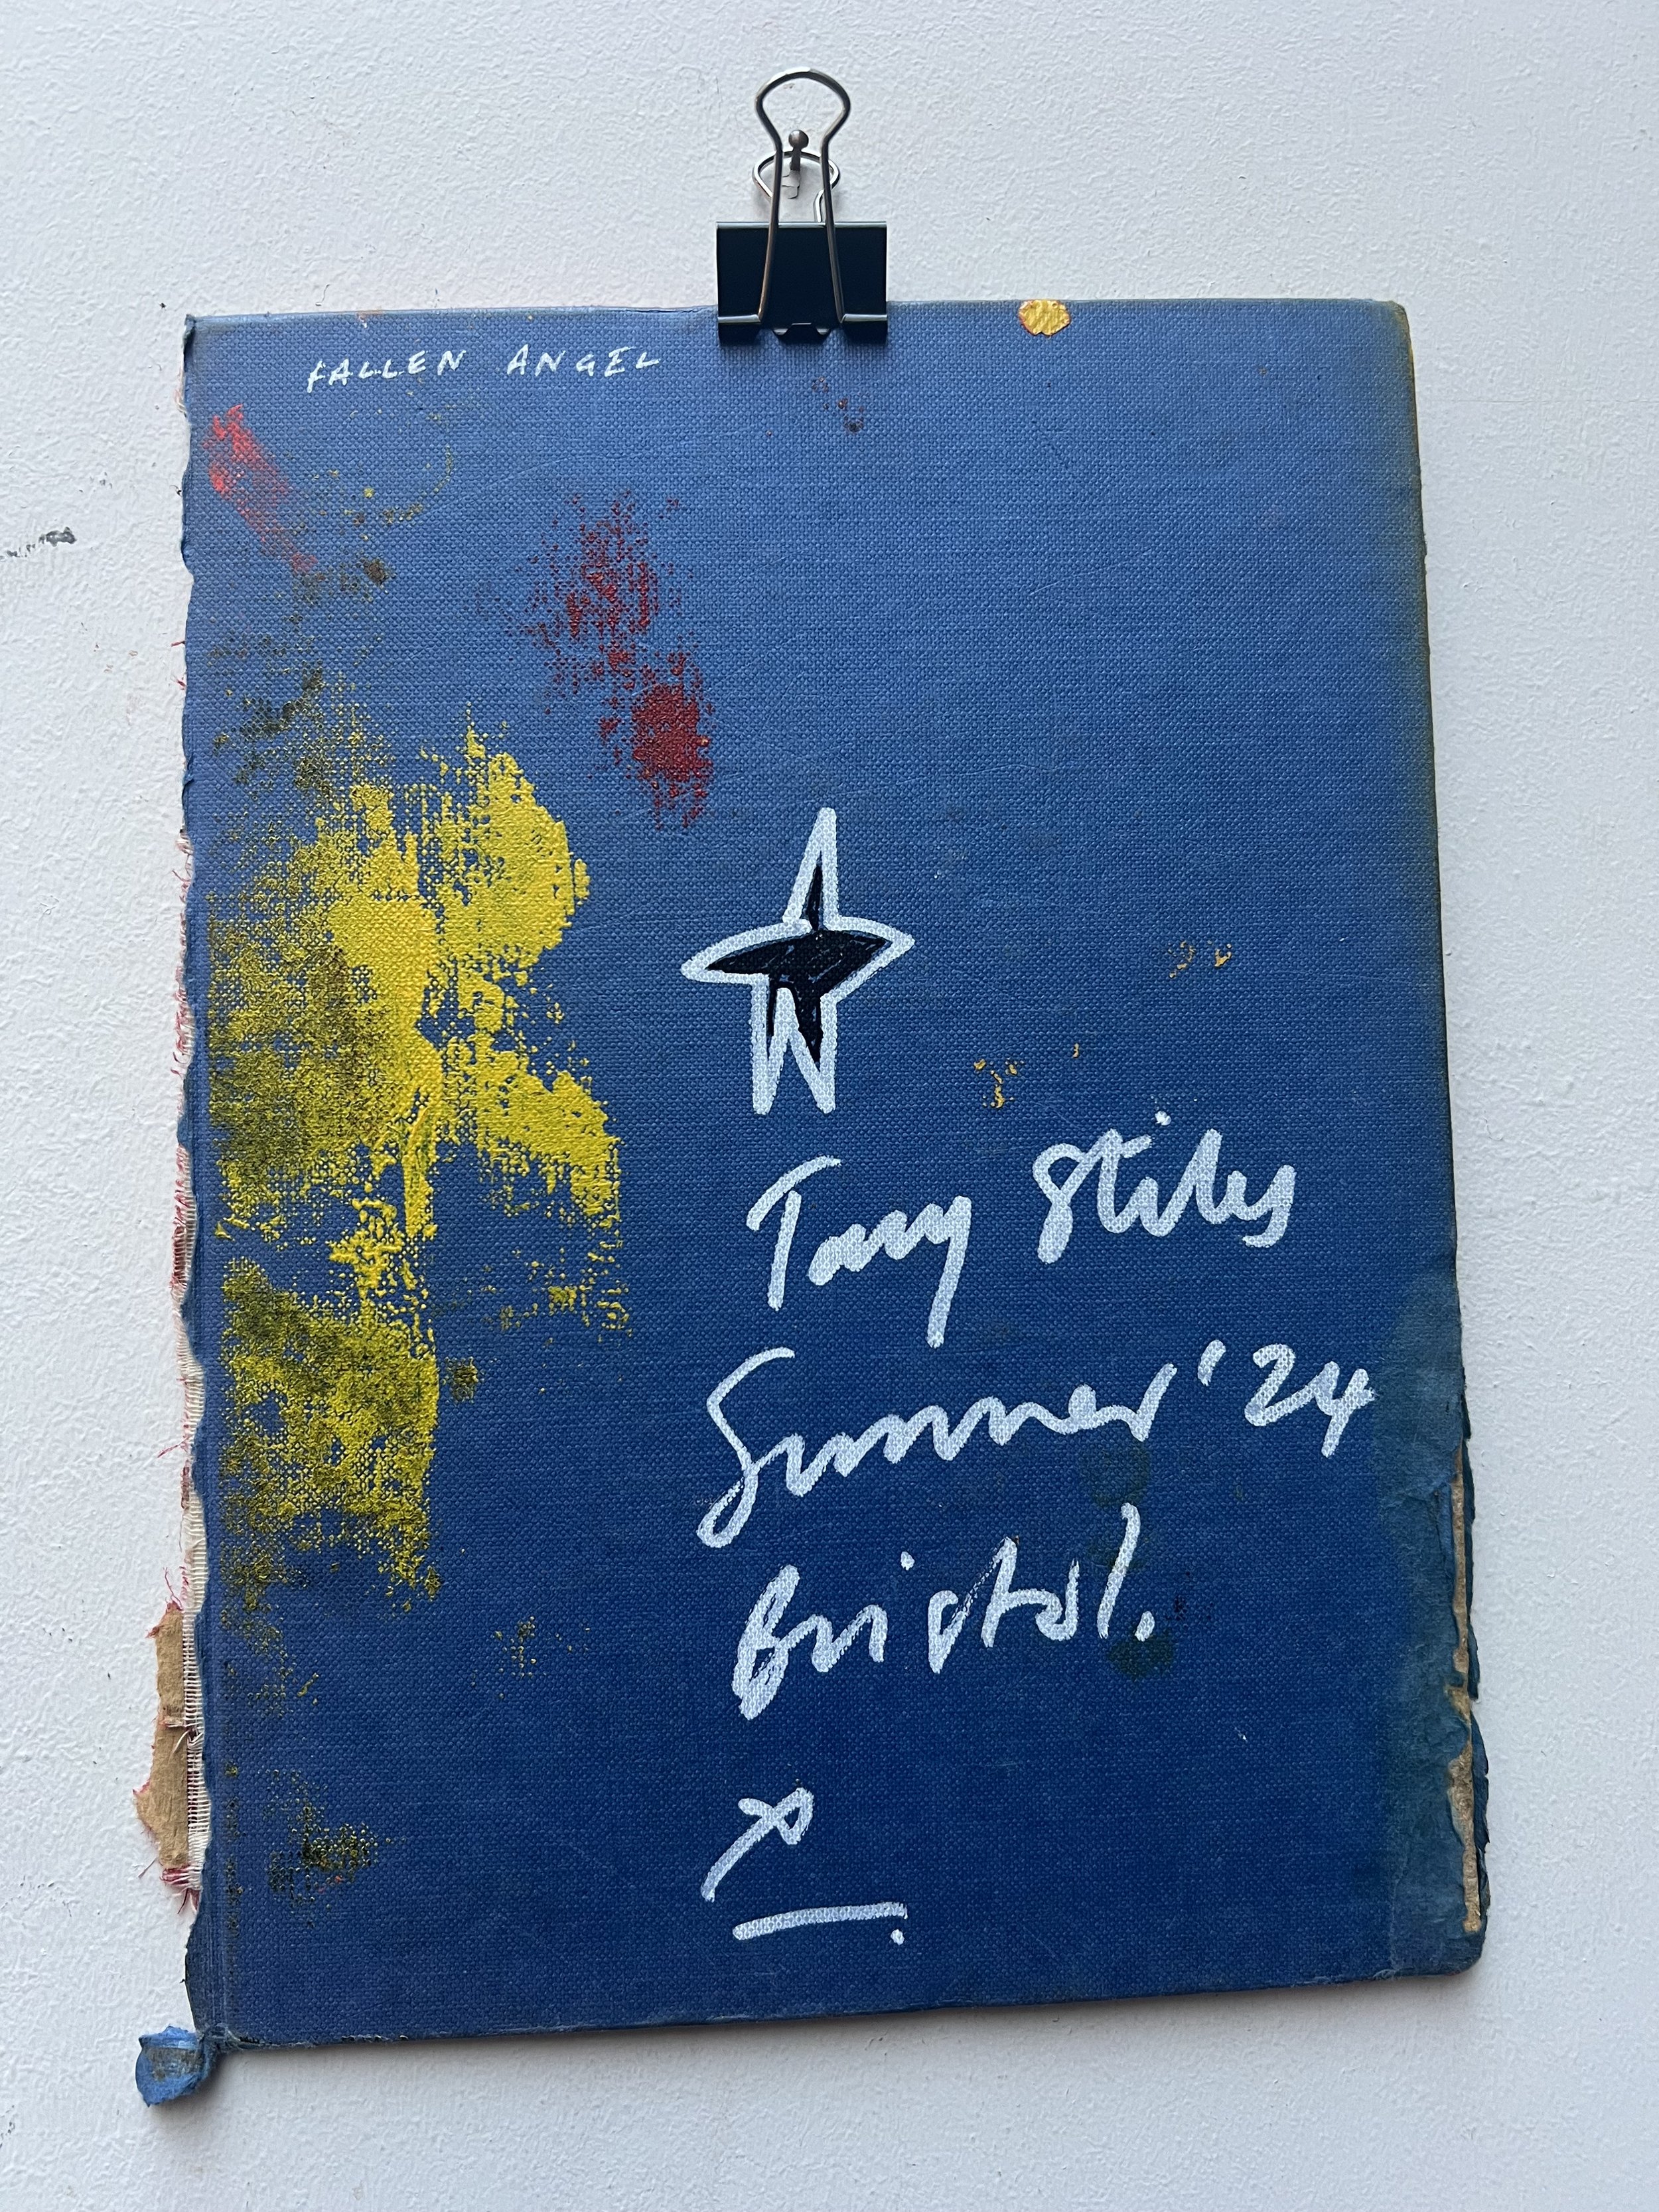 FALLEN ANGEL
Tony Stiles
Summer '24
Bristol.